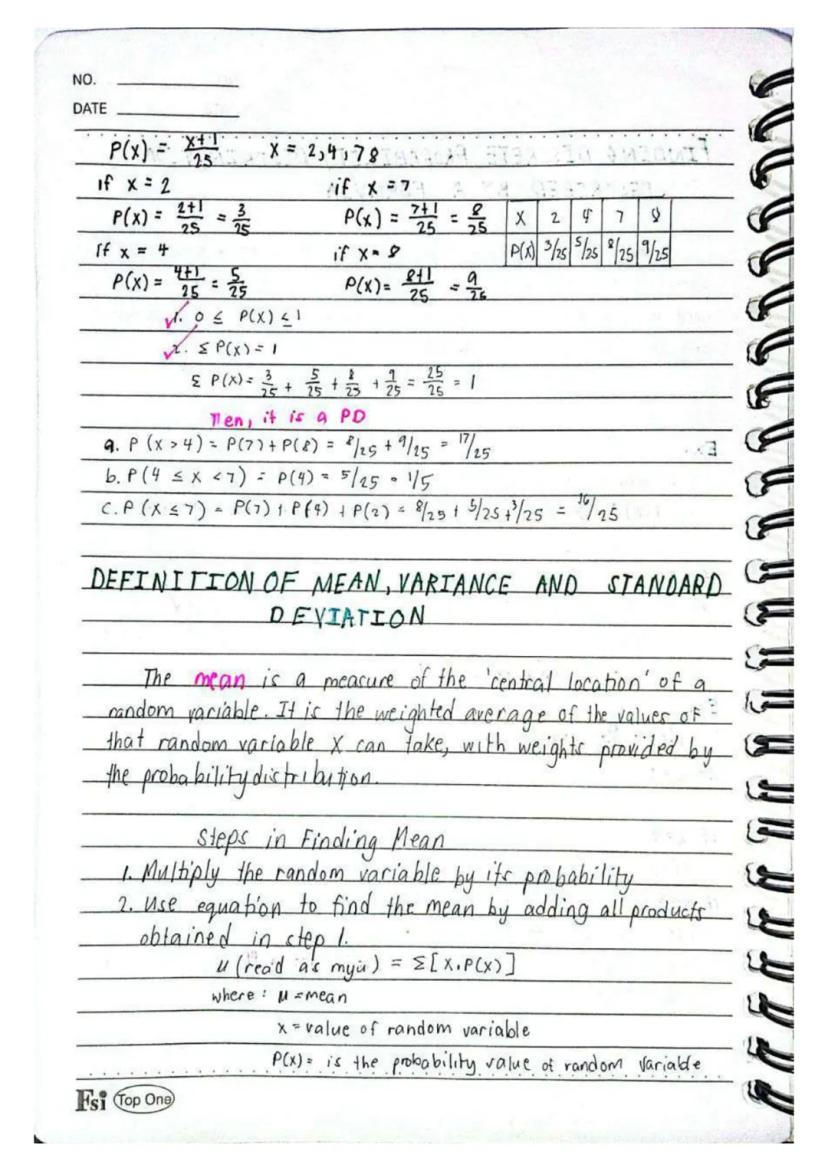 NO.
DATE
P(x) = x+1/25 x = 2,4,78
if x = 2 if x = 7
P(x) = 2+1/25 = 3/25 P(x) = 7+1/25 = 8/25 X 2 4 7 8
if x = 4 if x = 8 P(x) 3/25 5/25 8/25 9/25
P(x) = 4+1/25 = 5/25 P(x) = 8+1/25 = 9/25
1. 0 ≤ P(x) ≤ 1
2. Σ P(x) = 1
Σ P(x) = 3/25 + 5/25 + 8/25 + 9/25 = 25/25 = 1
Then, it is a PD
a. P (x > 4) = P(7) + P(8) = 8/25 + 9/25 = 17/25
b. P(4 ≤ x < 7) = P(4) = 5/25 = 1/5
c. P (x ≤ 7) = P(7) + P(4) + P(2) = 8/25 + 5/25 + 3/25 = 16/25
DEFINITION OF MEAN, VARIANCE AND STANDARD
DEVIATION
The mean is a measure of the 'central location' of a
random variable. It is the weighted average of the values of
that random variable X can take, with weights provided by
the probability distribution.
Steps in Finding Mean
1. Multiply the random variable by its probability
2. Use equation to find the mean by adding all products
obtained in step 1.
μ (read as myu) = Σ [X.P(X)]
where : μ = mean
x = value of random variable
P(X) = is the probability value of random variable
Fsi Top One